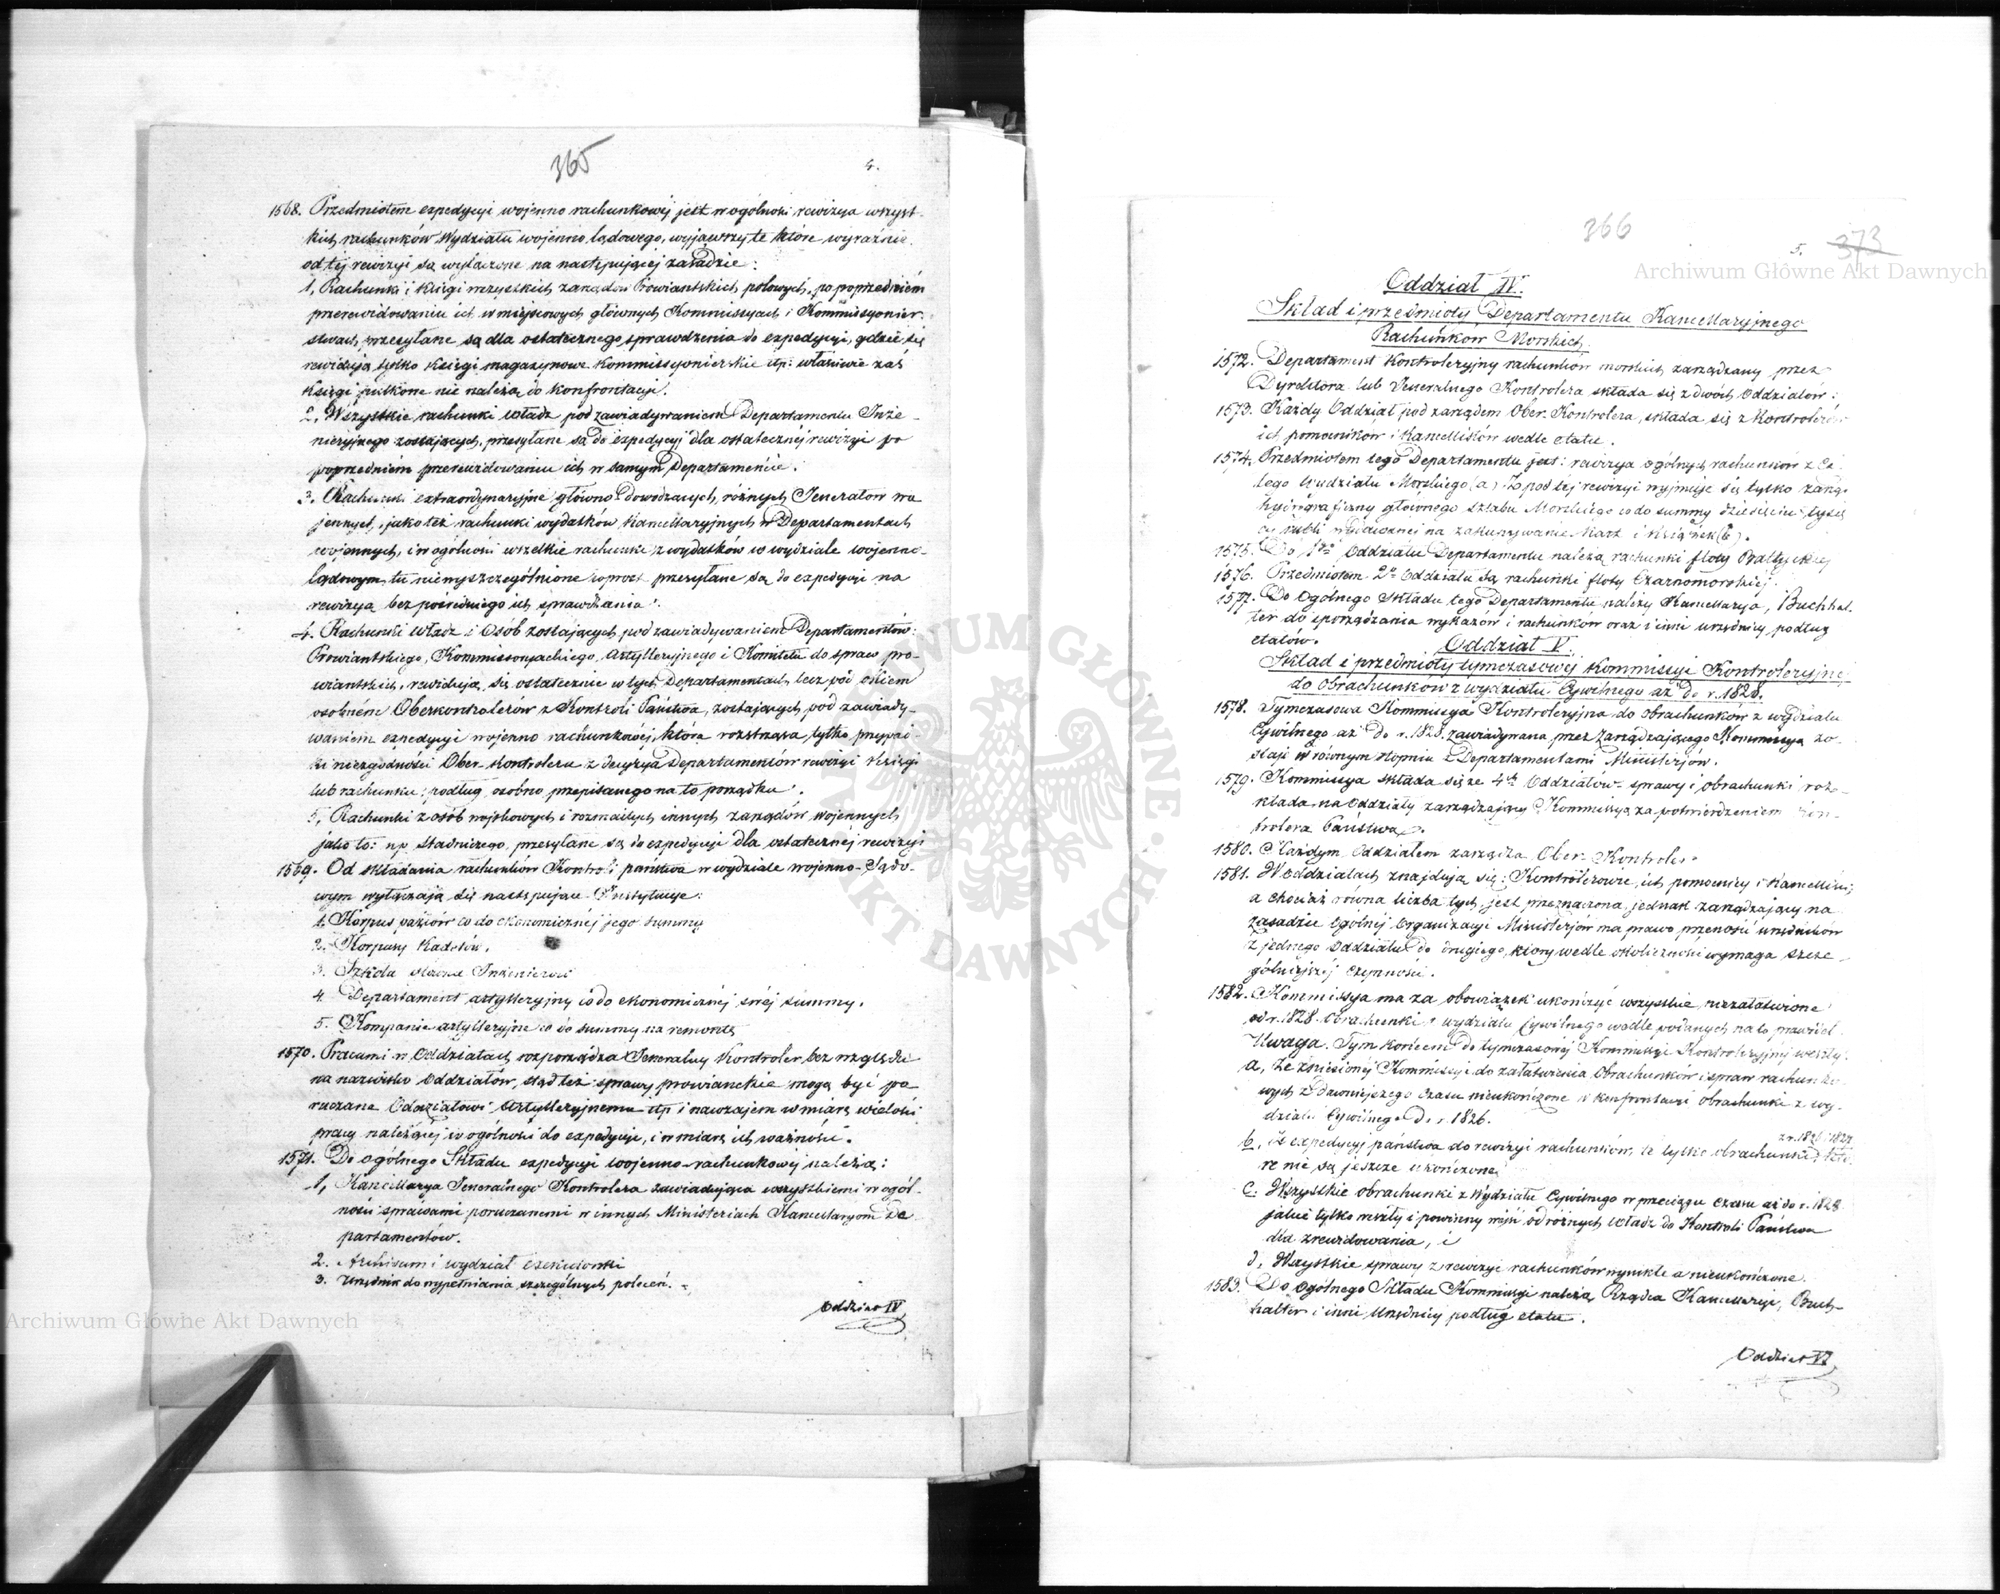 365
4.
1568. Przedmiotem expedycyi wojenno rachunkowej jest w ogólności rewizya wszyst-
kich rachunków Wydziału wojenno lądowego, wyjąwszy te które wyraźnie
od tej rewizyi są wyłączone na następującej zasadzie:
1, Rachunki i księgi wszystkich zarządów Prowiantskich polowych, po poprzedniém
przerewidowaniu ich w miejscowych głównych Kommissyach i Kommissyonier-
stwach, przesyłane są dla ostatecznego sprawdzenia do expedycyi, gdzie się
rewidują tylko księgi magazynowe kommissyonierskie itp: właściwie zaś
księgi pułkowe nie należą do konfrontacyi.
2, Wszystkie rachunki władz pod zawiadywaniem Departamentu Inże-
nieryjnego zostających, przesyłane są do expedycyi dla ostatecznéj rewizyi po
poprzedniém przerewidowaniu ich w samym Departamencie.
3, Rachunki extraordynaryjne główno dowodzących, różnych Jenerałów wo
jennych, jako też rachunki wydatków kancellaryjnych w Departamentach
wojennych, i w ogólności wszelkie rachunki z wydatków w wydziale wojenno-
lądowym, tu niewyszczególnione wprost przesyłane są do expedycyi na
rewizyą bez pośredniego ich sprawdzania.
4. Rachunki władz i osób zostających pod zawiadywaniem Departamentów:
Prowiantskiego, Kommissoryackiego, Artylleryjnego i Komitetu do spraw pro-
wiantskich, rewidują się ostatecznie w tych Departamentach lecz pod okiem
osobném Oberkontrolerów z Kontroli Państwa, zostających pod zawiady-
waniem expedycyi wojenno rachunkowéj, która rozstrząsa tylko przypad-
ki niezgodności Ober-Kontrolera z decyzyą Departamentów rewizyi księgi
lub rachunku, podług osobno przepisanego na to porządku.
5, Rachunki z osób wojskowych i rozmaitych innych zarządów wojennych
jako to: np Stadniczego, przesyłane są do expedycyi dla ostatecznéj rewizyi
1569. Od składania rachunków Kontroli państwa w wydziale wojenno-Lądo-
wym wyłączają się następujące Instytucye:
1. Korpus paziów co do ekonomicznéj jego summy
2. Korpusy Kadetów.
3. Szkoła główna Inżenierów
4. Departament artylleryjny co do ekonomicznéj swéj summy.
5. Kompanie artylleryjne co do summy na remontę
1570. Pracami w Oddziałach rozporządza Jeneralny Kontroler bez względu
na nazwisko Oddziałów, stąd też sprawy prowianckie mogą być po
ruczane Oddziałowi Artylleryjnemu itp i nawzajem w miarę wielości
pracy należącéj w ogólności do expedycyi, i w miarę ich ważności.
1571. Do ogólnego Składu expedycyi wojenno-rachunkowéj należą:
1, Kancellarya Jeneralnego Kontrolera zawiadująca wszystkiemi w ogól-
ności sprawami poruczanemi w innych Ministeriach Kancellaryom De
partamentów.
2. Archiwum i wydział exekutorski
3. Urzędnik do wypełniania szczególnych poleceń.
Oddział IV
366
5. 373
Oddział IV.
Skład i przedmioty Departamentu Kancellaryjnego
Rachunków Morskich
1572. Departament Kontroleryjny rachunków morskich, zarządzany przez
Dyrektora lub Jeneralnego Kontrolera składa się z dwóch Oddziałów:
1573. Każdy Oddział pod zarządem Ober-Kontrolera, składa się z Kontrolerów
ich pomocników i Kancellistów wedle etatu.
1574. Przedmiotem tego Departamentu jest: rewizya ogólnych rachunków z ca
łego Wydziału Morskiego (a). Z pod téj rewizyi wyjmuje się tylko zarząd
hydrograficzny głównego sztabu Morskiego co do summy dziesięciu tysię
cy rubli wydawanéj na zakupywanie kart i książek (b).
1575. Do 1go Oddziału Departamentu należą rachunki floty Bałtyckiej
1576. Przedmiotem 2o Oddziału są rachunki floty Czarnomorskiej.
1577. Do Ogólnego Składu tego Departamentu należy Kancellarya, Buchhal-
ter do sporządzania wykazów i rachunków oraz i inni urzędnicy podług
etatów.
Oddział V.
Skład i przedmioty tymczasowéj Kommissyi Kontroleryjnej
do obrachunków z wydziału Cywilnego aż do r. 1828.
1578. Tymczasowa Kommissya Kontroleryjna do obrachunków z wydziału
Cywilnego aż do r. 1828. zawiadywana przez Zarządzającego Kommissyą zo-
staje w równym stopniu z Departamentami Ministerjów.
1579. Kommissya składa się ze 4ch Oddziałów sprawy i obrachunki roz-
kłada na Oddziały zarządzający Kommissyą za potwierdzeniem Kon-
trolera Państwa.
1580. Każdym Oddziałem zarządza Ober-Kontroler.
1581. W oddziałach znajdują się: Kontrolerowie, ich pomocnicy i Kancelliści;
a chociaż równa liczba tych jest przeznaczona, jednak zarządzający na
zasadzie Ogólnéj Organizacyi Ministerjów ma prawo przenosić urzędników
z jednego Oddziału do drugiego, który wedle okoliczności wymaga szcze-
gólniejszéj czynności.
1582. Kommissya ma za obowiązek ukończyć wszystkie niezałatwione
od r. 1828. Obrachunki z wydziału Cywilnego wedle podanych na to prawideł.
Uwaga. Tym końcem do tymczasowéj Kommissyi Kontroleryjnéj weszły:
a, Ze zniesionéj Kommissyi do załatwienia Obrachunków i spraw rachunko
wych z dawniejszego czasu nieukończone i konfrontacyi obrachunki z wy-
działu Cywilnego do r. 1826.
b, Z expedycyi państwa do rewizyi rachunków, te tylko obrachunki z r. 1826 i 1827 któ
re nie są jeszcze ukończone
c. Wszystkie obrachunki z Wydziału Cywilnego w przeciągu czasu aż do r. 1828
jakie tylko weszły i powinny wejść od różnych władz do Kontroli Państwa
dla zrewidowania, i
d, Wszystkie sprawy z rewizyi rachunków wynikłe a nieukończone.
1583. Do Ogólnego Składu Kommissyi należą Rządca Kancellaryi, Buch-
halter i inni Urzędnicy podług etatu.
Oddział VI
Archiwum Główne Akt Dawnych
Archiwum Główne Akt Dawnych
ARCHIWUM GŁÓWNE AKT DAWNYCH